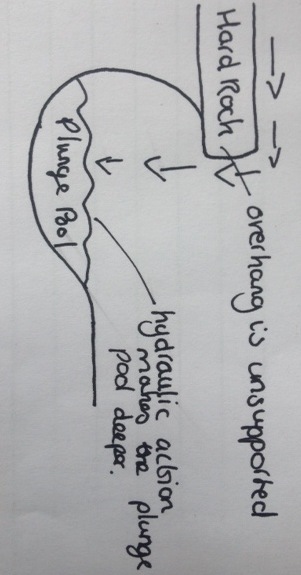 Hard Rock
overhang is unsupported
Plunge Pool
hydraulic action
makes the plunge
pool deeper.